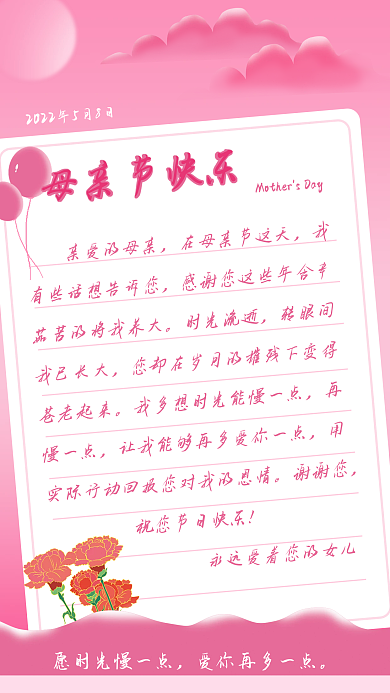 2022年5月8日
母亲节快乐
Mother's Day
亲爱的母亲，在母亲节这天，我
有些话想告诉您，感谢您这些年含辛
茹苦的将我养大。时光流逝，转眼间
我已长大，您却在岁月的摧残下变得
苍老起来。我多想时光能慢一点，再
慢一点，让我能够再多爱你一点，用
实际行动回报您对我的恩情。谢谢您，
祝您节日快乐！
永远爱着您的女儿
愿时光慢一点，爱你再多一点。